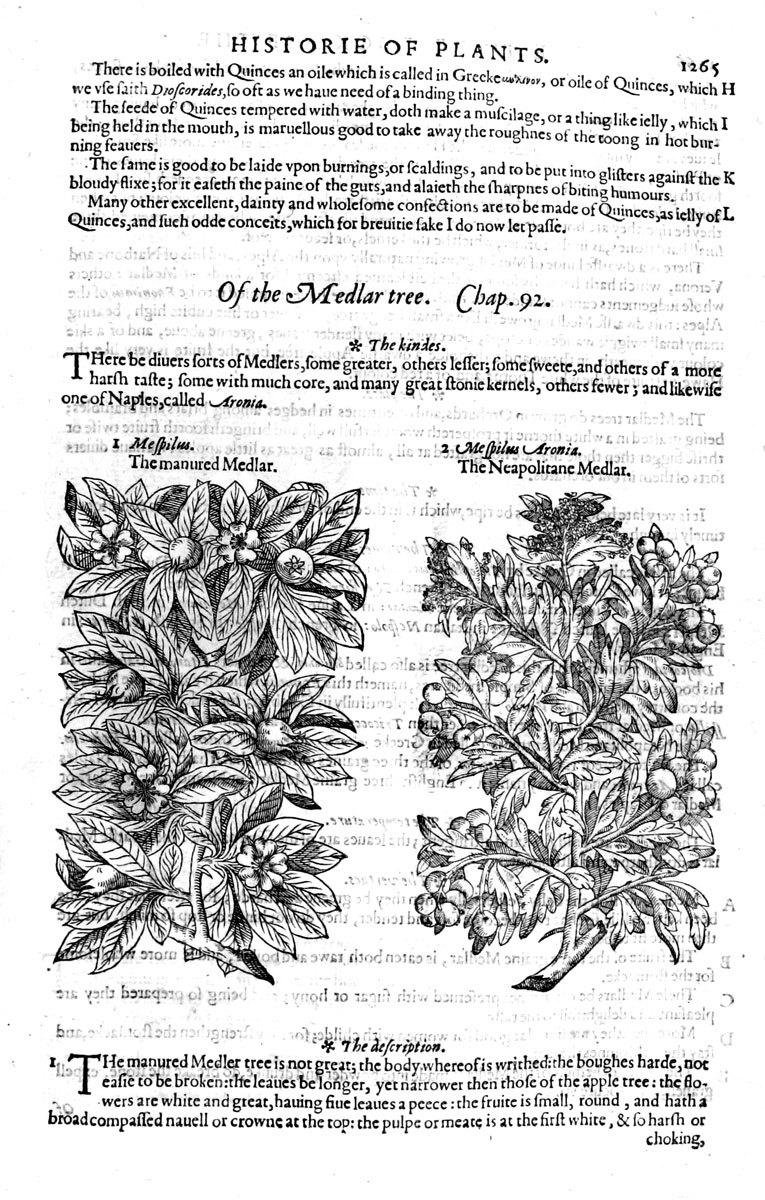 HISTORIE OF PLANTS.
1265
There is boiled with Quinces an oile which is called in Greeke, or oile of Quinces, which H
we vſe ſaith Dioſcorides, ſo oft as we haue need of a binding thing.
The ſeede of Quinces tempered with water, doth make a muſcilage, or a thing like ielly, which I
being held in the mouth, is maruellous good to take away the roughnes of the toong in hot bur-
ning feauers.
The ſame is good to be laide vpon burnings, or ſcaldings, and to be put into gliſters againſt the K
bloudy flixe; for it eaſeth the paine of the guts, and alaieth the ſharpnes of biting humours.
Many other excellent, dainty and wholeſome confections are to be made of Quinces, as ielly of L
Quinces, and ſuch odde conceits, which for breuitie ſake I do now let paſſe.
Of the Medlar tree. Chap. 92.
* The kindes.
THere be diuers ſorts of Medlers, ſome greater, others leſſer; ſome ſweete, and others of a more
harſh taſte; ſome with much core, and many great ſtonie kernels, others fewer; and likewiſe
one of Naples, called Aronia.
1 Meſpilus.
The manured Medlar.
2 Meſpilus Aronia.
The Neapolitane Medlar.
* The deſcription.
1. THe manured Medler tree is not great; the body whereof is writhed: the boughes harde, not
eaſie to be broken: the leaues be longer, yet narrower then thoſe of the apple tree: the flo-
wers are white and great, hauing fiue leaues a peece: the fruite is ſmall, round, and hath a
broad compaſſed nauell or crowne at the top: the pulpe or meate is at the firſt white, & ſo harſh or
choking,